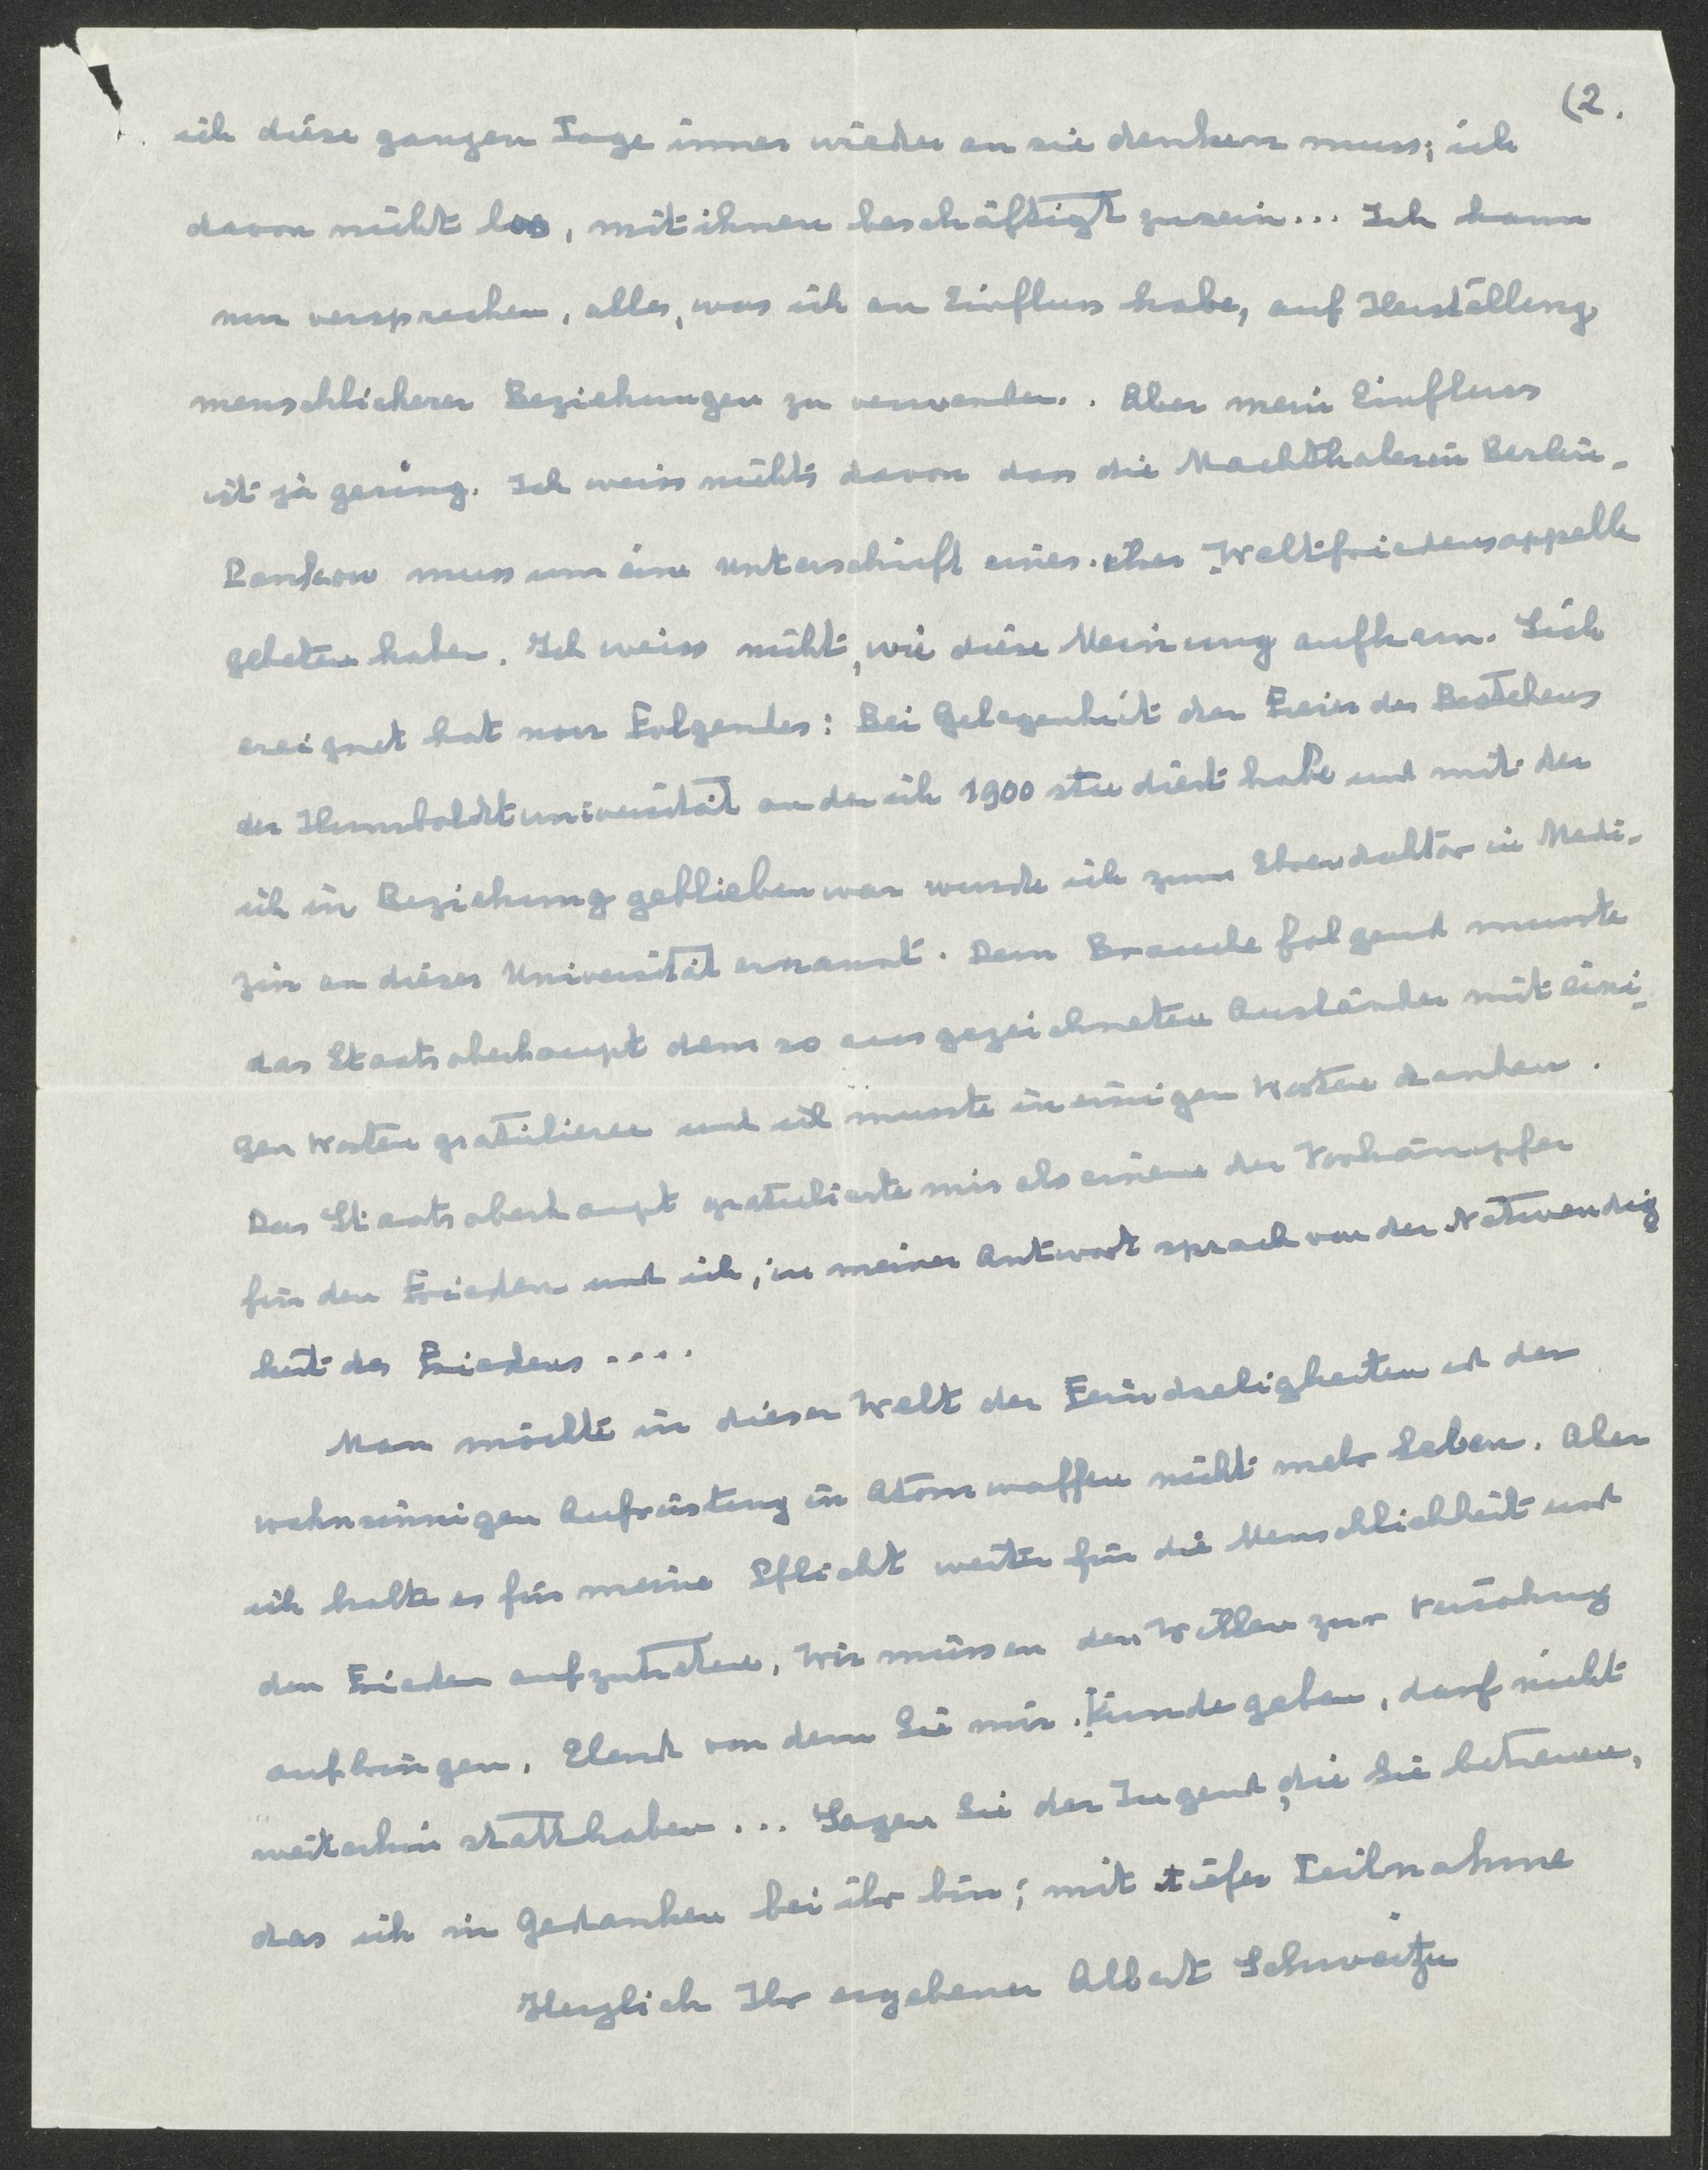 (2.
ich diese ganzen Tage immer wieder an sie denken muss; ich
davon nicht los, mit ihnen beschäftigt zu sein... Ich kann
nur versprechen, alles, was ich an Einfluss habe, auf Herstellung
menschlicherer Beziehungen zu verwenden.. Aber mein Einfluss
ist ja gering. Ich weiss nichts davon dass die Machthaber in Berlin-
Pankow muss um eine Unterschrift eines Weltfriedensappells
gebeten haben. Ich weiss nicht, wie diese Meinung aufkam. Sich
ereignet hat nur Folgendes: Bei Gelegenheit der Feier des Bestehens
der Humboldtuniversität an der ich 1900 studiert habe und mit der
ich in Beziehung geblieben war wurde ich zum Ehrendoktor in Medi-
zin an dieser Universität ernannt. Dem Brauche folgend musste
das Staatsoberhaupt dem so ausgezeichneten Ausländer mit eini-
gen Worten gratulieren und ich musste in einigen Worten danken.
Das Staatsoberhaupt gratulierte mir als einem der Vorkämpfer
für den Frieden und ich, in meiner Antwort sprach von der Notwendig
keit des Friedens ....
Man möchte in dieser Welt der Feindseligkeiten u der
wahnsinnigen Aufrüstung in Atomwaffen nicht mehr leben. Aber
ich halte es für meine Pflicht weiter für die Menschlichkeit und
den Frieden aufzutreten. Wir müssen den Willen zur Versöhnug
aufbringen. Elend von dem Sie mir Kunde geben, darf nicht
weiterhin statthaben... Sagen Sie der Jugend, die Sie betreuen,
das ich in Gedanken bei ihr bin; mit tiefer Teilnahme
Herzlich Ihr ergebener Albert Schweitzer